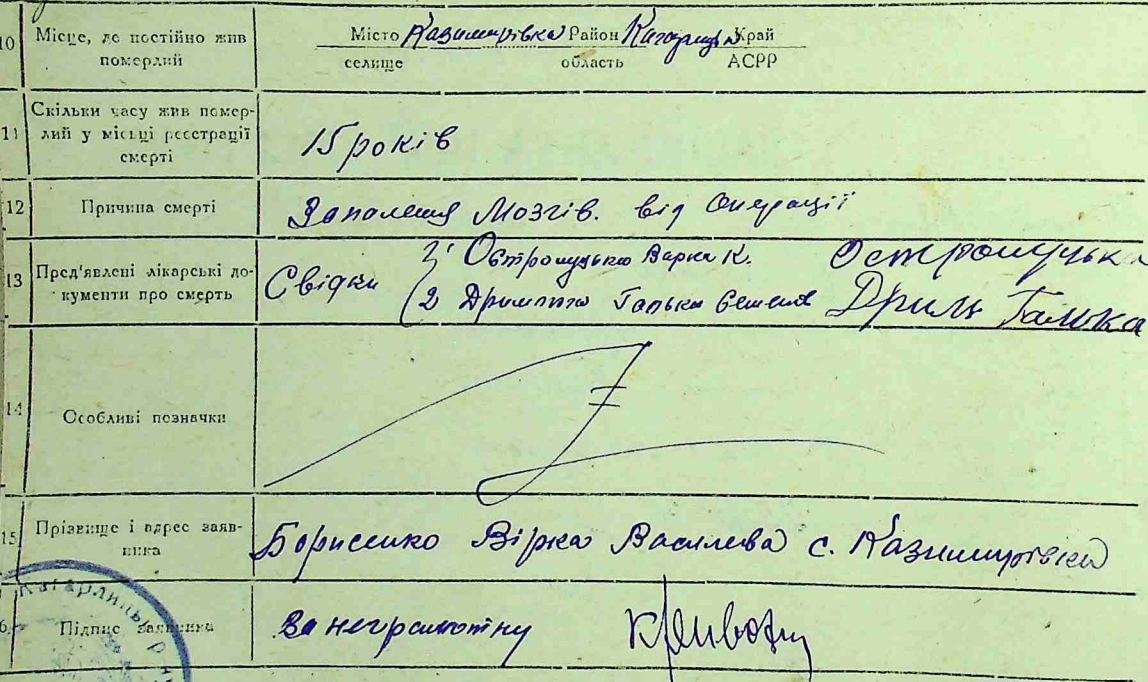 10 Місце, де постійно жив померлий Місто Казимирівка Район Кагарлицьк Край
селище область АСРР
11 Скільки часу жив помер-
лий у місці реєстрації
смерті
15 років
12 Причина смерті Заполення Мозгів. від Операції
13 Пред'явлені лікарські до-
кументи про смерть
Свідки 1 Остроluцька Варка К.
2 Галька Дриль Галька
14 Особливі позначки
15 Прізвище і адрес заяв-
ника
Борисенко Вірка Василева с. Казимирівка
6. Підпис заявника За неграмотну
Кагарлицьк